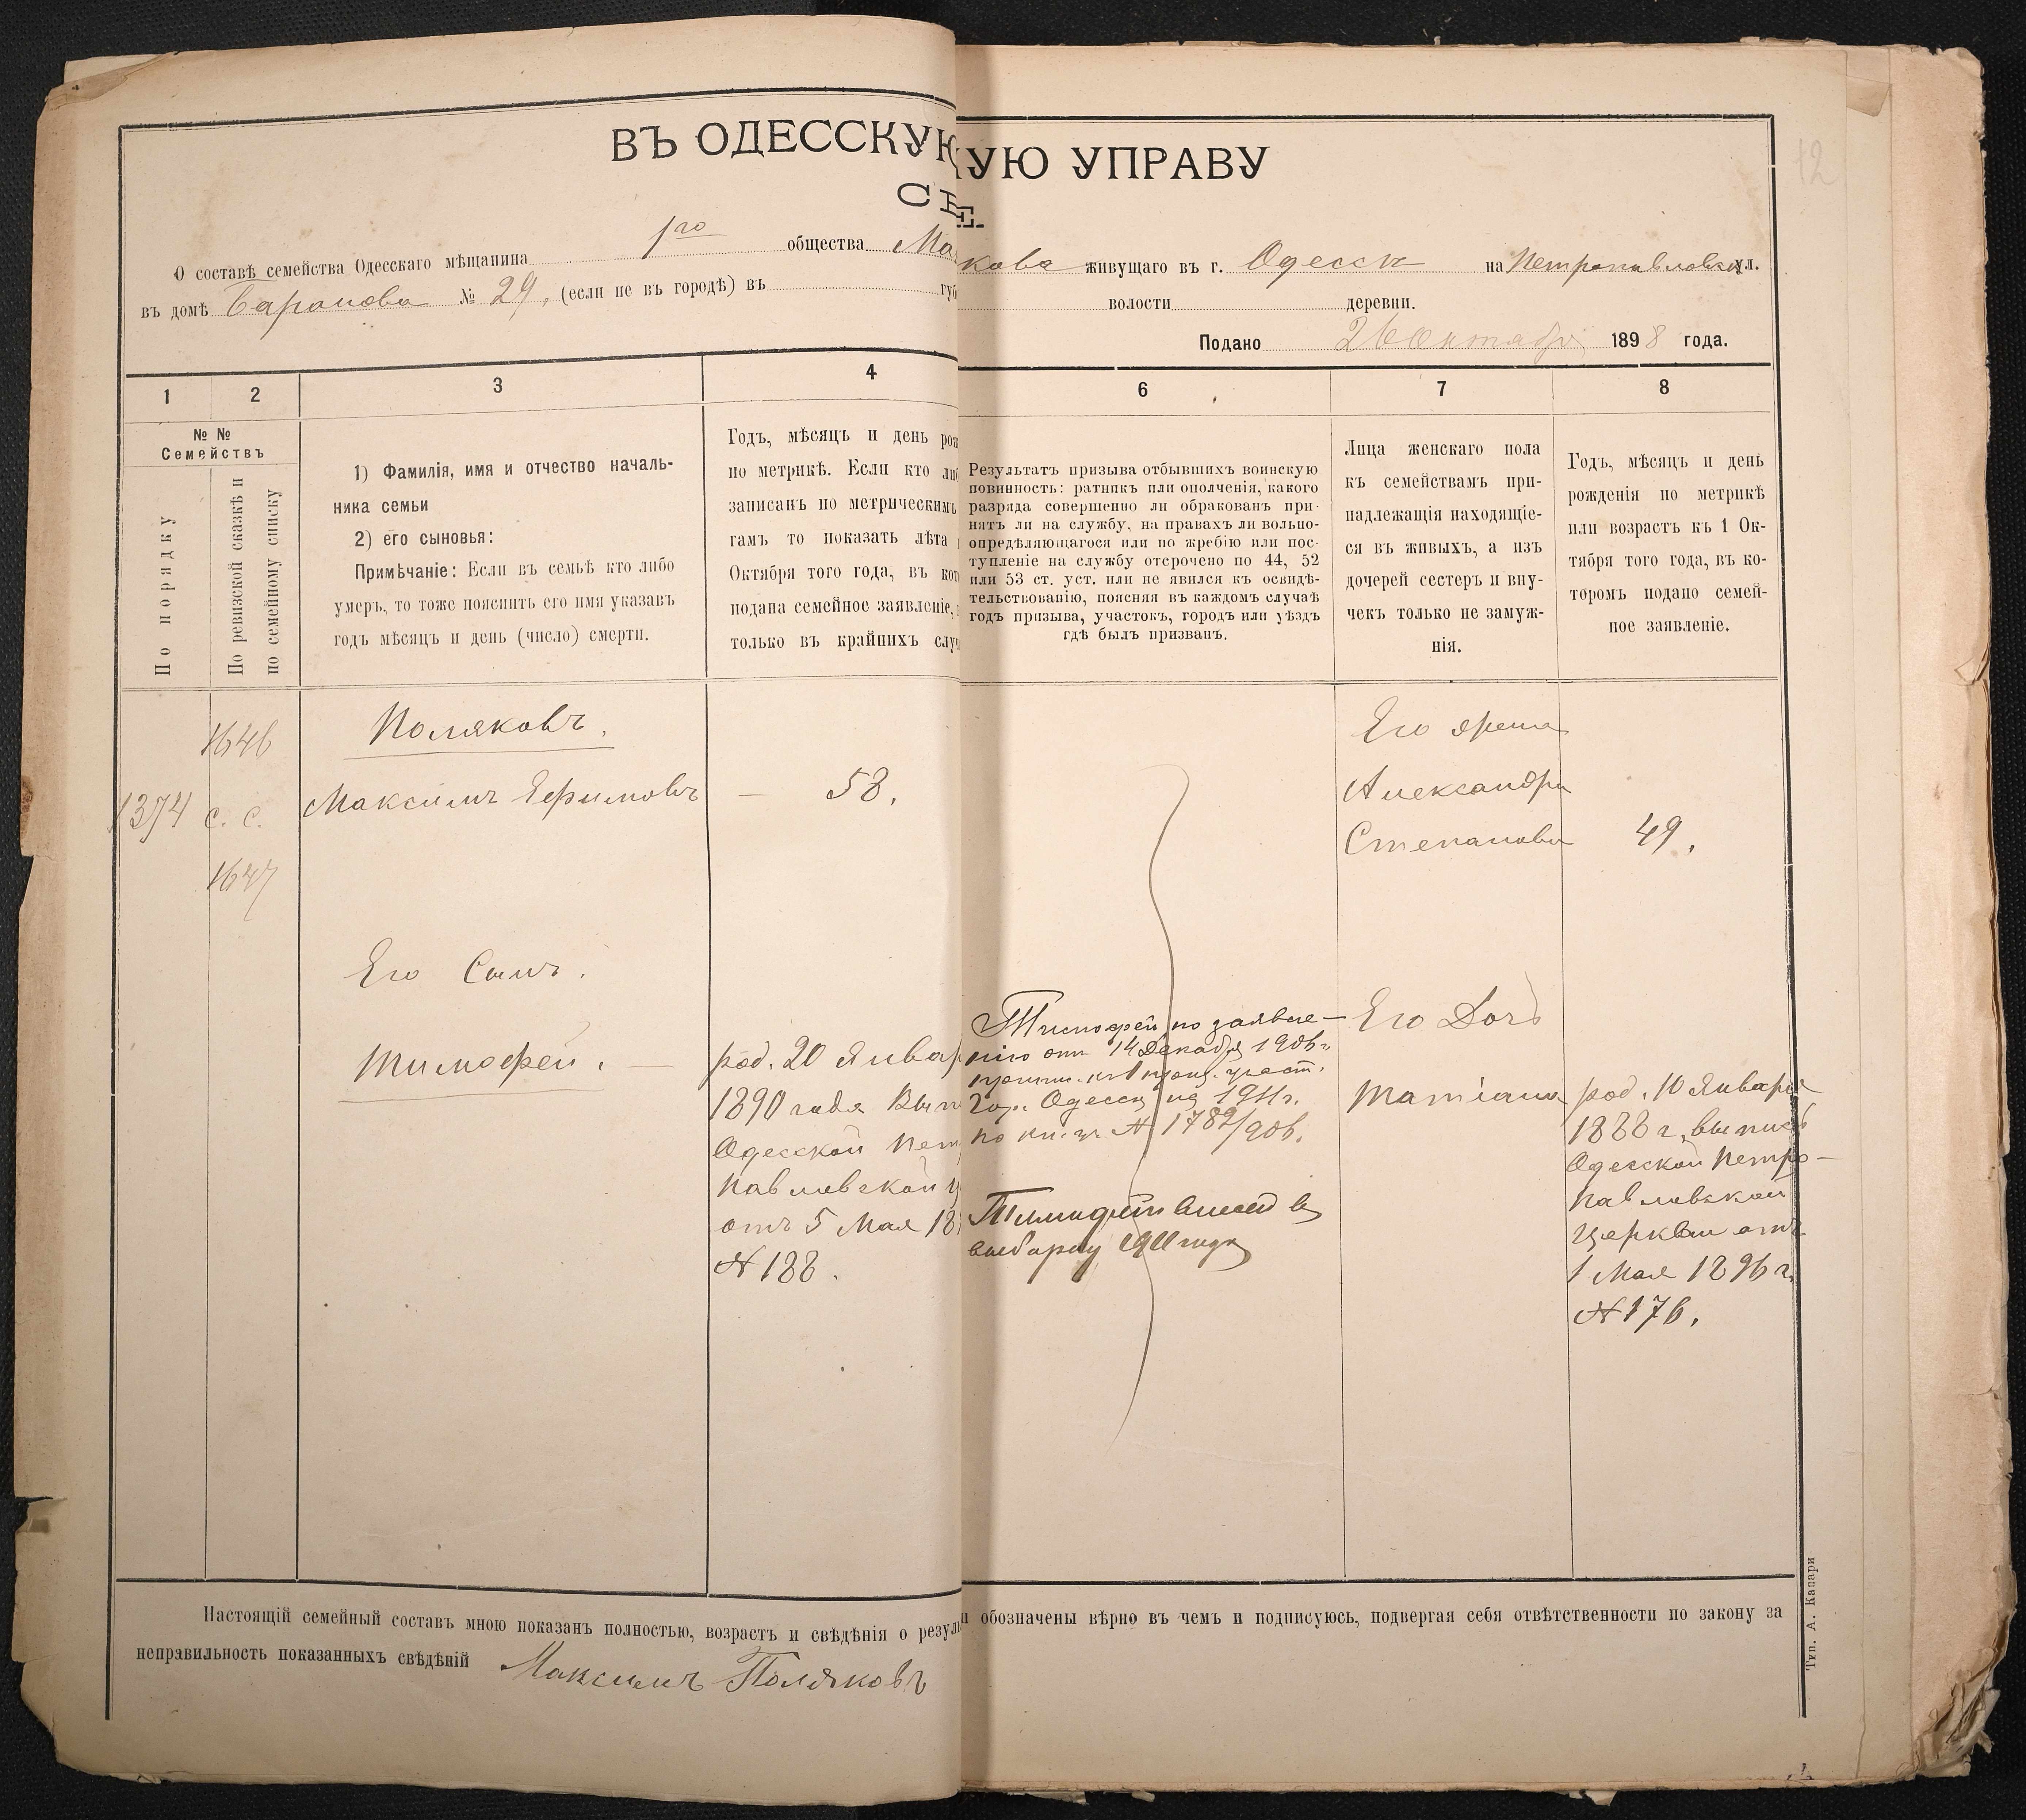 ВЪ ОДЕССКУЮ УПРАВУ
12
О составѣ семейства Одесскаго мѣщанина 1го общества Ма
кова живущаго въ г. Одессѣ на Петропавловской ул.
въ домѣ Баранова № 29, (если не въ городѣ) въ губ
волости деревни.
Подано 26 Октября 1898 года.
1 2 3 4 6 7 8
№ №
Семействъ
По порядку
По ревизской сказкѣ и
по семейному списку
1) Фамилія, имя и отчество началь-
ника семьи
2) его сыновья:
Примѣчаніе: Если въ семьѣ кто либо
умеръ, то тоже пояснить его имя указавъ
годъ мѣсяцъ и день (число) смерти.
Годъ, мѣсяцъ и день рож
по метрикѣ. Если кто либ
записанъ по метрическимъ
гамъ то показать лѣта
Октября того года, въ кот
подана семейное заявленіе,
только въ крайнихъ слу
Результатъ призыва отбывшихъ воинскую
повинность: ратникъ или ополченія, какого
разряда совершенно ли обракованъ при-
нятъ ли на службу, на правахъ ли вольно-
опредѣляющагося или по жребію или пос-
тупленіе на службу отсрочено по 44, 52
или 53 ст. уст. или не явился къ освидѣ-
тельствованію, поясняя въ каждомъ случаѣ
годъ призыва, участокъ, городъ или уѣздъ
гдѣ былъ призванъ.
Лица женскаго пола
къ семействамъ при-
надлежащія находящіе-
ся въ живыхъ, а изъ
дочерей сестеръ и вну-
чекъ только не замуж-
нія.
Годъ, мѣсяцъ и день
рожденія по метрикѣ
или возрастъ къ 1 Ок-
тября того года, въ ко-
торомъ подано семей-
ное заявленіе.
1646
1374 с. с.
1647
Поляковъ.
Максимъ Ефимовъ — 58.
Его Сынъ.
Тимофей. —
род. 20 Январ
1890 года Вып
Одесской Пет
Павловской ц
отъ 5 Мая 18
№ 188.
Тимофей по заявле-
нію отъ 14 Декабря 1906 г.
припис. къ 1 приз. участ.
гор. Одессы на 1911 г.
по кн. за № 1782/906.
Тимофей внесен в
выборку 1911 года
Его жена
Александра
Степанова 49.
Его Дочь
Татіана
род. 10 Января
1888 г. выпись
Одесской Петро-
Павловской
Церкви отъ
1 Мая 1896 г.
№ 176.
Настоящій семейный составъ мною показанъ полностью, возрастъ и свѣдѣнія о резуль
и обозначены вѣрно въ чемъ и подписуюсь, подвергая себя отвѣтственности по закону за
неправильность показанныхъ свѣдѣній Максимъ Поляковъ
Тип. А. Капари